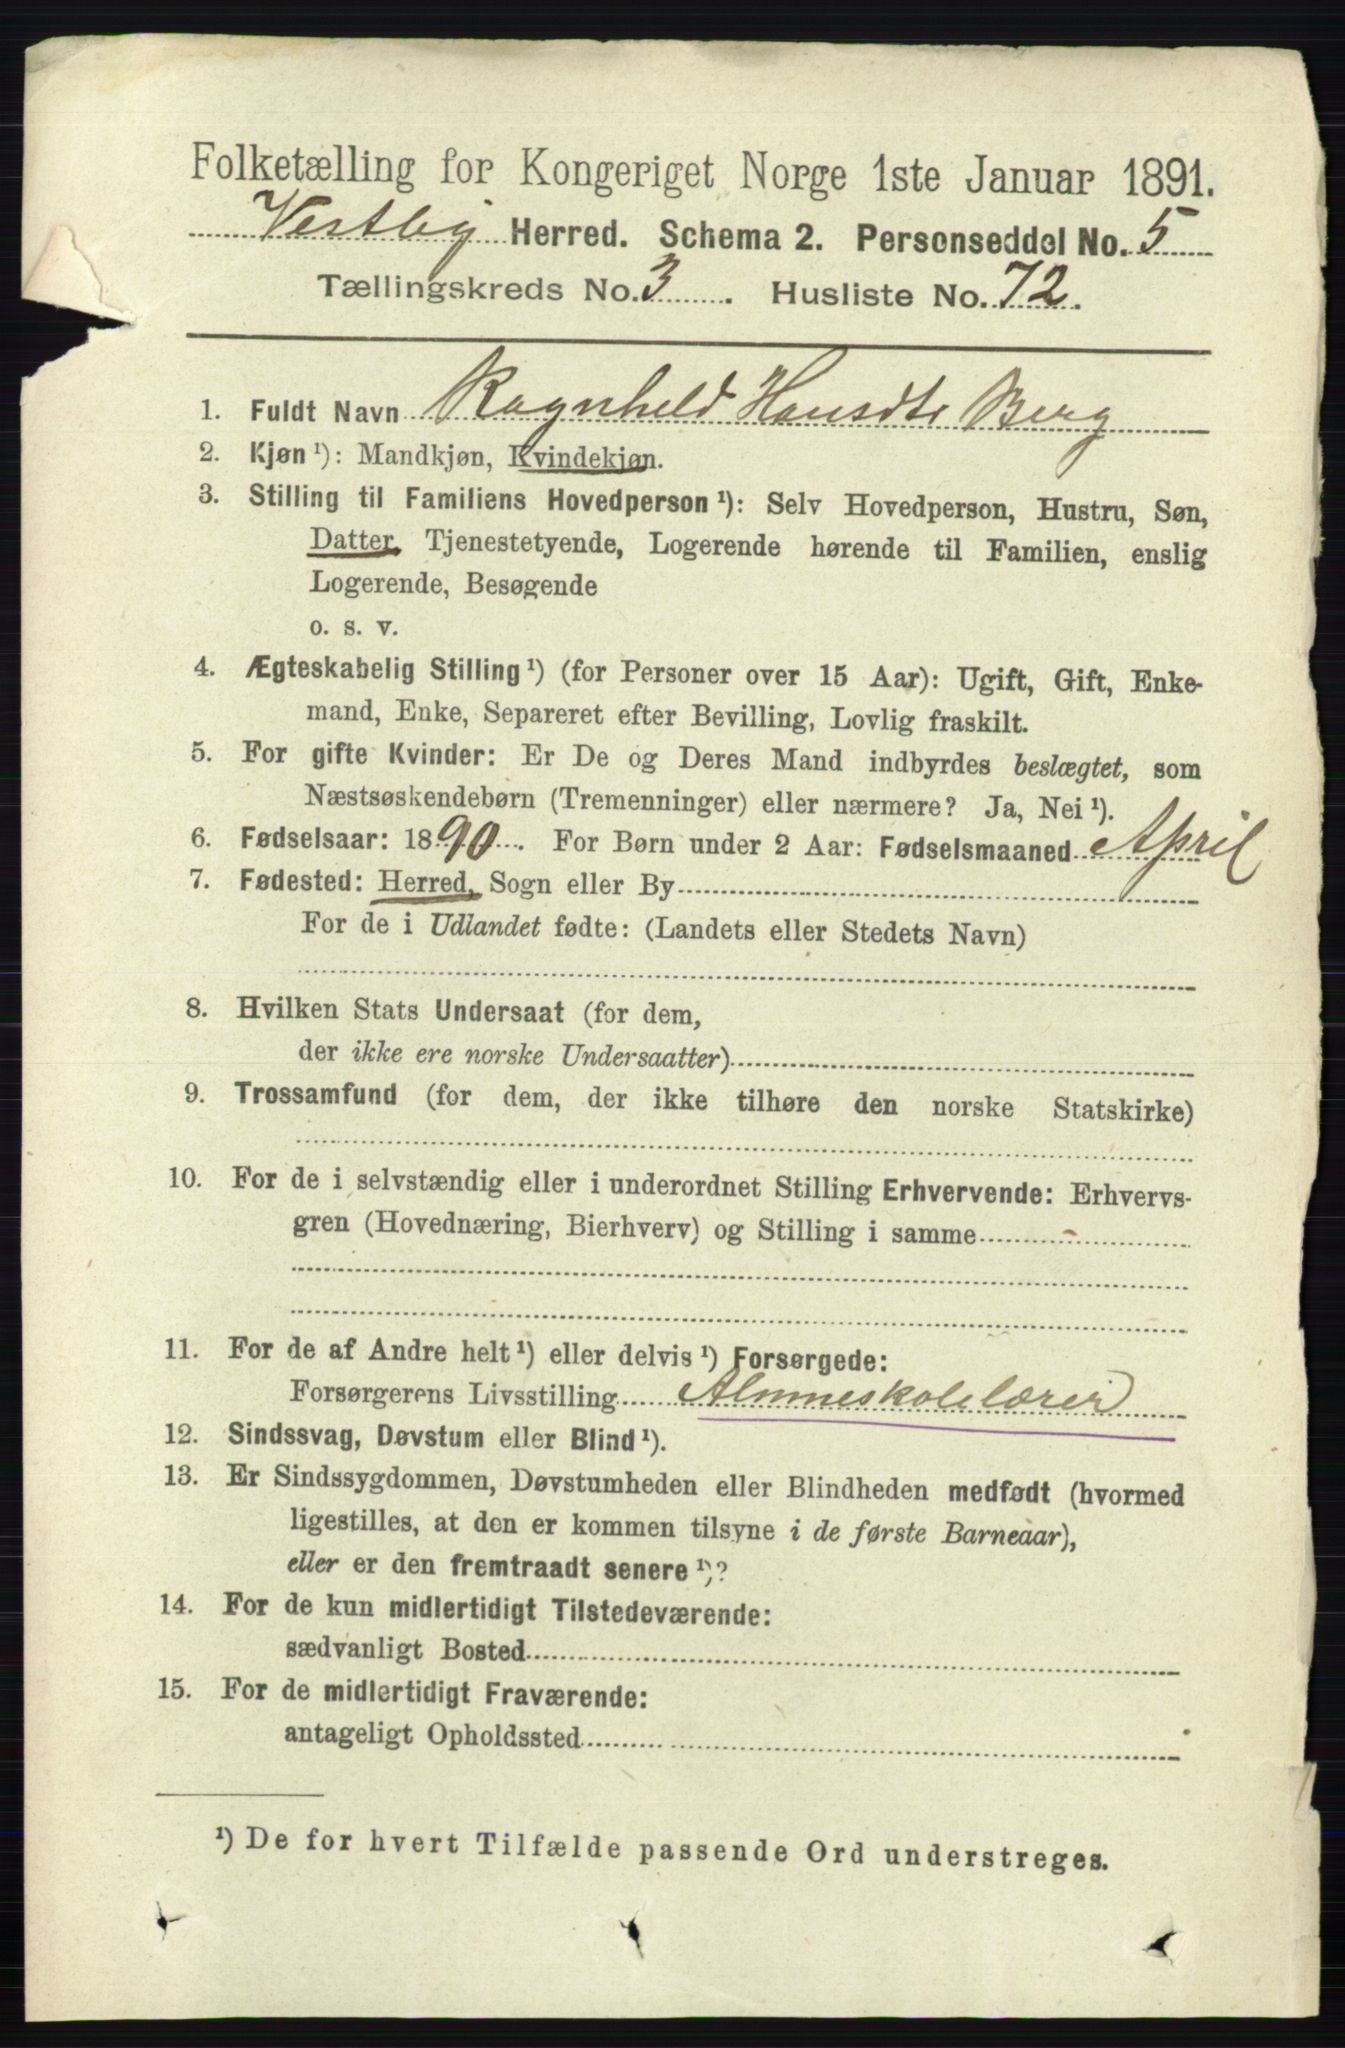 Folketælling for Kongeriget Norge 1ste Januar 1891.
Vestby Herred. Schema 2. Personseddel No. 5
Tællingskreds No. 3. Husliste No. 72.
1. Fuldt Navn Ragnheld Hansdtr Berg
2. Kjøn¹): Mandkjøn, Kvindekjøn.
3. Stilling til Familiens Hovedperson¹): Selv Hovedperson, Hustru, Søn,
Datter, Tjenestetyende, Logerende hørende til Familien, enslig
Logerende, Besøgende
o. s. v.
4. Ægteskabelig Stilling¹) (for Personer over 15 Aar): Ugift, Gift, Enke-
mand, Enke, Separeret efter Bevilling, Lovlig fraskilt.
5. For gifte Kvinder: Er De og Deres Mand indbyrdes beslægtet, som
Næstsøskendebørn (Tremenninger) eller nærmere? Ja, Nei¹).
6. Fødselsaar: 1890. For Børn under 2 Aar: Fødselsmaaned April
7. Fødested: Herred, Sogn eller By
For de i Udlandet fødte: (Landets eller Stedets Navn)
8. Hvilken Stats Undersaat (for dem,
der ikke ere norske Undersaatter)
9. Trossamfund (for dem, der ikke tilhøre den norske Statskirke)
10. For de i selvstændig eller i underordnet Stilling Erhvervende: Erhvervs-
gren (Hovednæring, Bierhverv) og Stilling i samme -
11. For de af Andre helt¹) eller delvis¹) Forsørgede:
Forsørgerens Livsstilling Almueskolelærer
12. Sindssvag, Døvstum eller Blind¹).
13. Er Sindssygdommen, Døvstumheden eller Blindheden medfødt (hvormed
ligestilles, at den er kommen tilsyne i de første Barneaar),
eller er den fremtraadt senere¹)?
14. For de kun midlertidigt Tilstedeværende:
sædvanligt Bosted
15. For de midlertidigt Fraværende:
antageligt Opholdssted
¹) De for hvert Tilfælde passende Ord understreges.